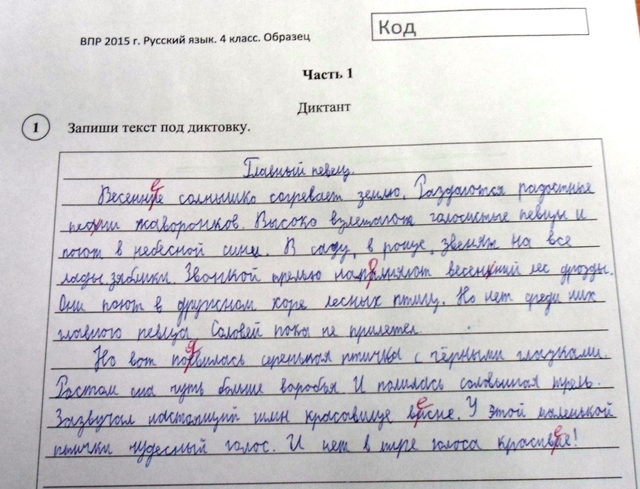 ВПР 2015 г. Русский язык. 4 класс. Образец
Код
Часть 1
Диктант
1 Запиши текст под диктовку.
Главный певец.
Весенние солнышко согревает землю. Раздаются радостные
песни жаворонков. Высоко взлетают голосистые певцы и
поют в небесной сини. В саду, в роще, звенят на все
лады зяблики. Звонкой трелью наполняют весенний лес дрозды.
Они поют в дружном хоре лесных птиц. Но нет среди них
главного певца. Соловей пока не прилетел.
Но вот появилась серенькая птичка с чёрными глазками.
Ростом она чуть больше воробья. И полилась соловьиная трель.
Зазвучал настоящий гимн красавице весне. У этой маленькой
птички чудесный голос. И нет в мире голоса красивее!